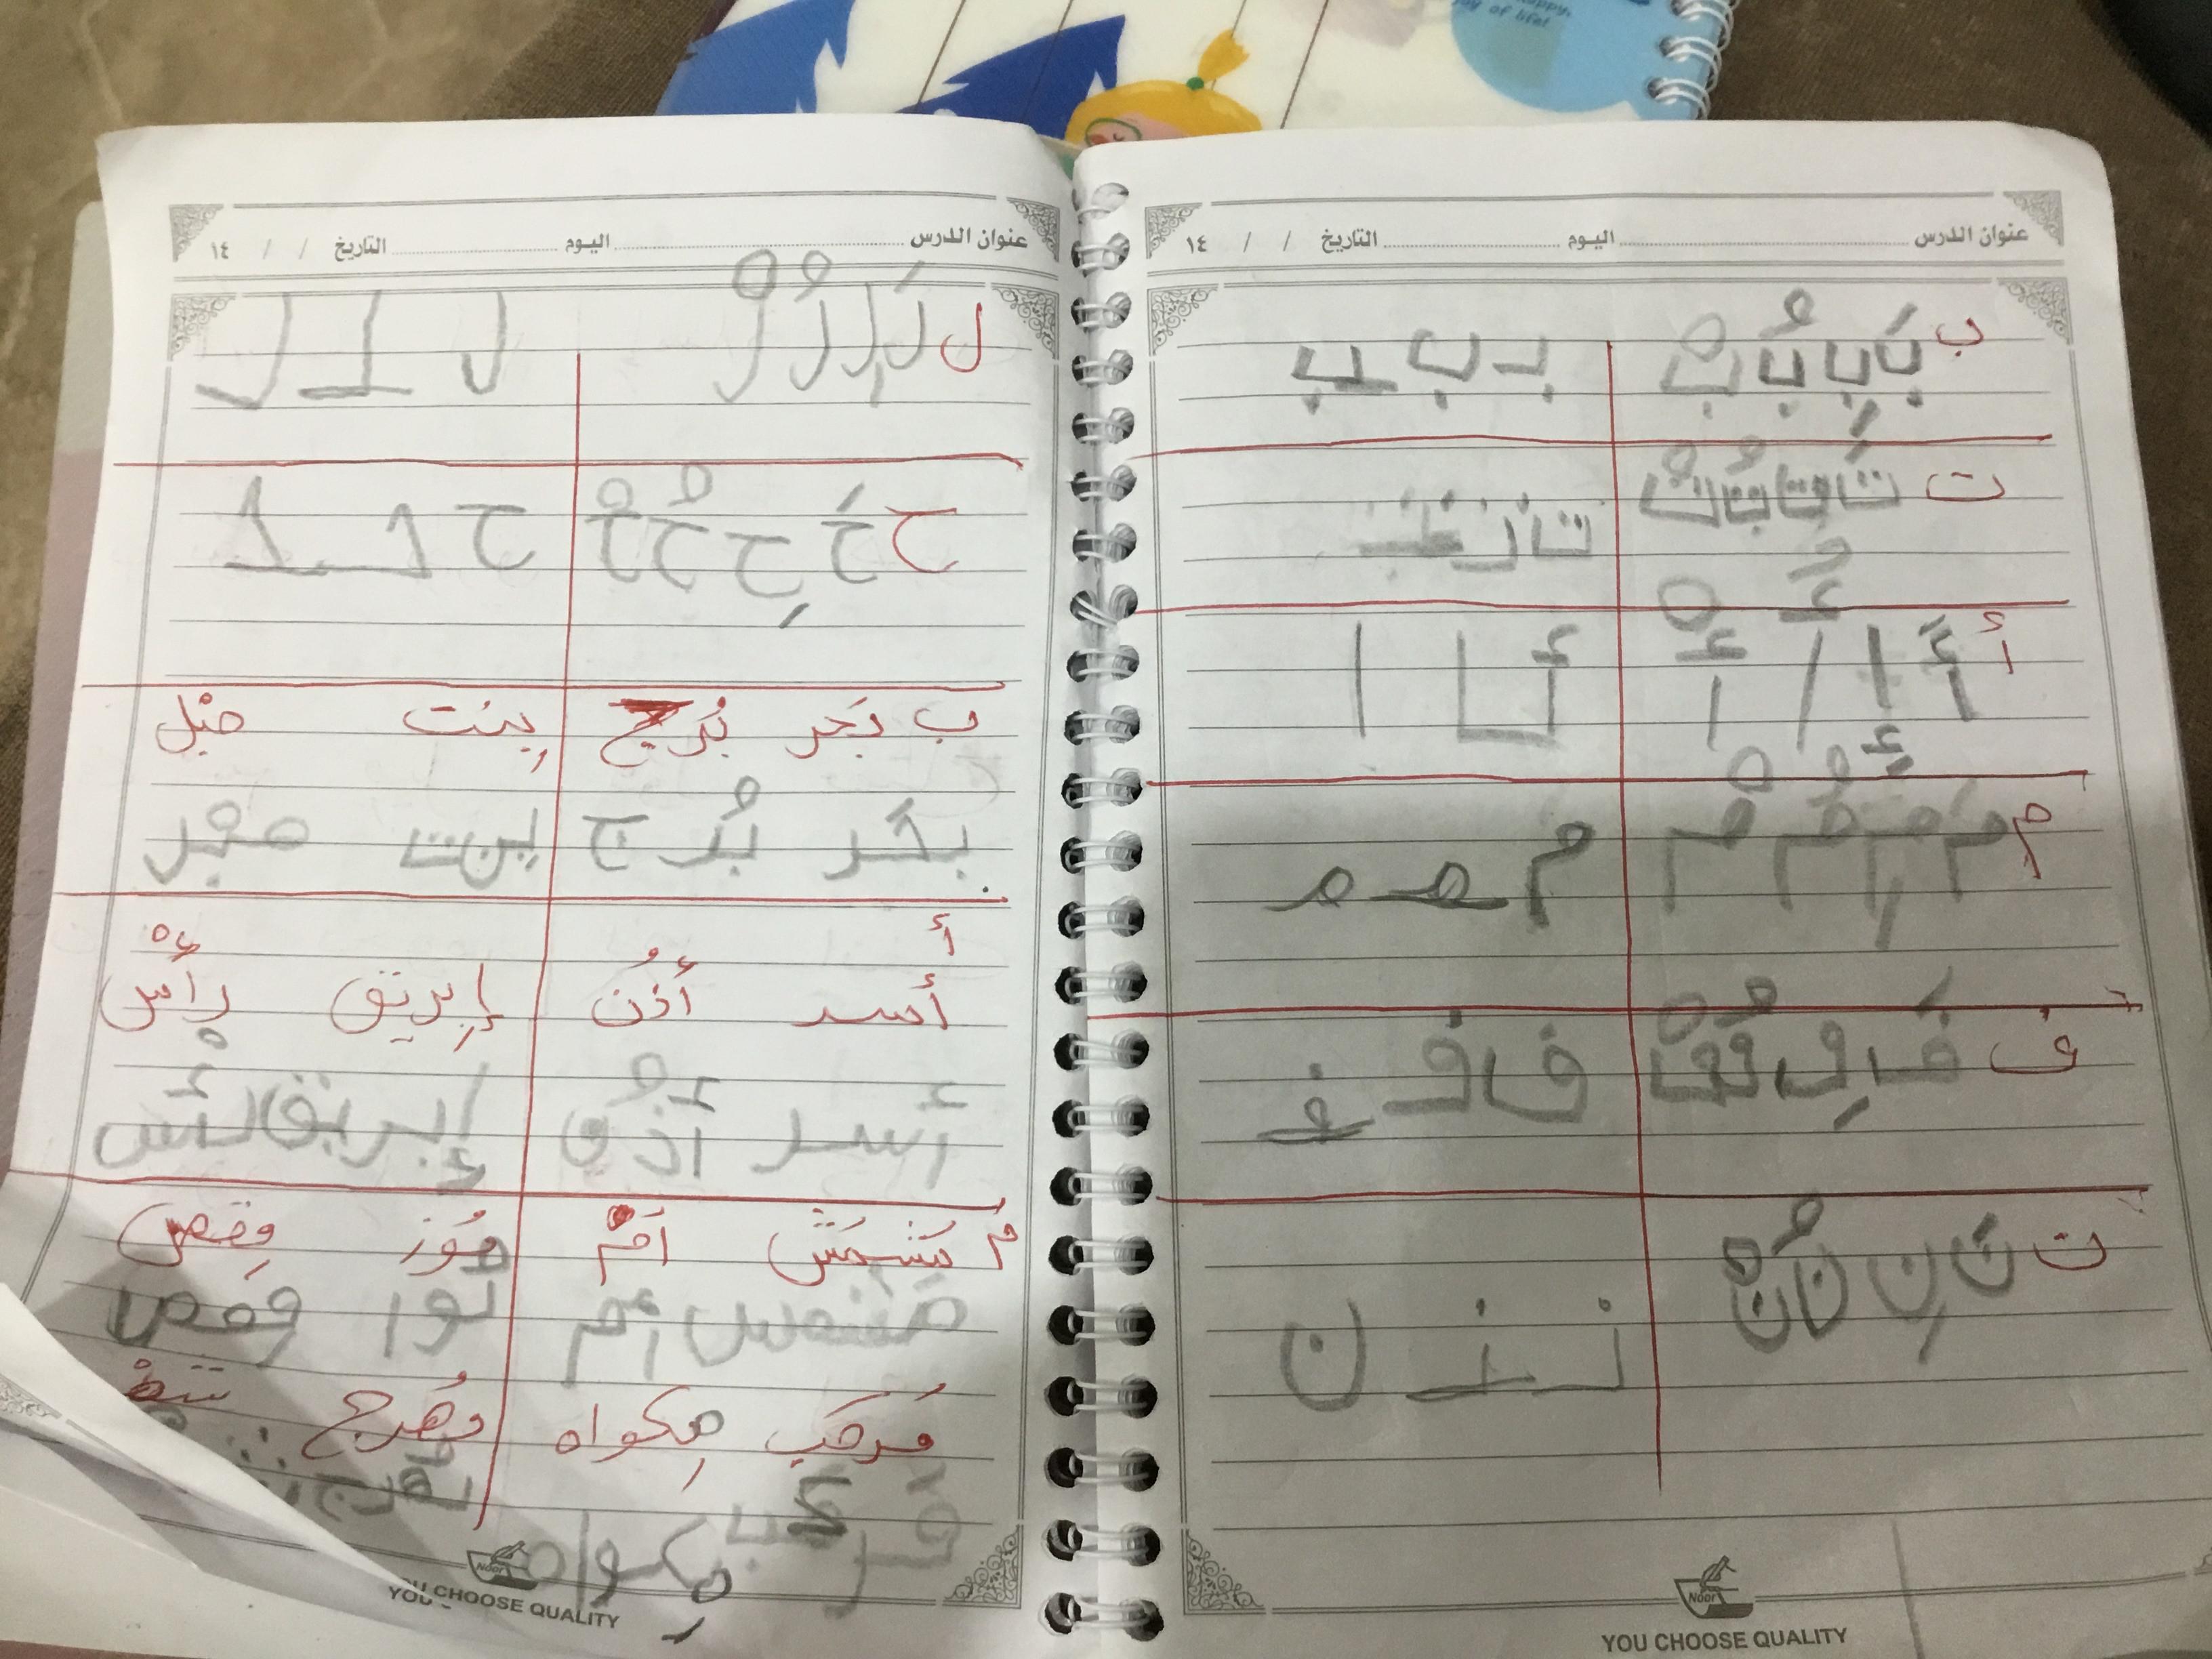 happy,
joy of life!
عنوان الدرس اليوم التاريخ / / ١٤
ب بَ بِ بُ بْ بـ ب ـب
ت تَ تِ تُ تْ
أ أَ إِ أُ أْ أ ـا ا
م مَ مِ مُ مْ م ـمـ مـ
ف فَ فِ فُ فْ ف فـ ـفـ
ن نَ نِ نُ نْ نـ ـنـ ن
YOU CHOOSE QUALITY
عنوان الدرس اليوم التاريخ / / ١٤
ل لَ لِ لُ لْ ل ـلـ ـل
ح حَ حِ حُ حْ ح ـحـ
ب بُرج بِنت
بُرج بنت
أ
أسد أُذُن إبريق رأْس
أسد أُذن إبريق
م مَوز مِقص
أم مقص
مَركب مِكواه مُهرج
مركب مِكواه
Noor
YOU CHOOSE QUALITY